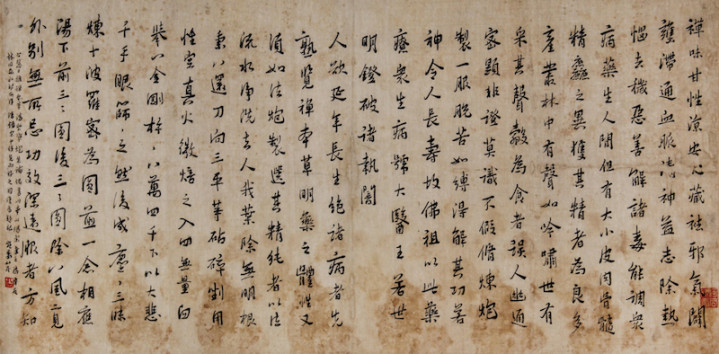 禪味甘性涼安心藏祛邪氣闢
壅滯通血脈清神益志除熱
惱去穢惡善解諸毒能調衆
病藥生人間但有大小皮肉骨髓
精麤之異獲其精者為良多
產叢林中有聲如吟嘯世有
采其聲殼為食者誤人幽通
密顯非證莫識不假脩煉炮
製一服脫苦如縛得解其功若
神令人長壽故佛祖以此藥
療衆生病號大醫王若世
明鐙破諸執闇
人欲延年長生絕諸病者先
熟覽禪本草明藥之體性又
須如法炮製選其精純者以法
流水淨洗去人我葉除無明根
秉八還刀向三平等砧碎剉用
性空真火微焙之入四無量臼
舉八金剛杵八萬四千下以大悲
千手眼篩〻之然後成塵〻三昧
煉十波羅密為圓煎一念相應
湯下前三〻圓後三〻圓除八風二見
外別無所忌功效深遠服者方知